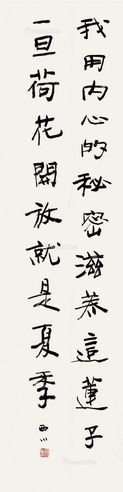 我用内心的秘密滋养這蓮子
一旦荷花開放就是夏季
西川